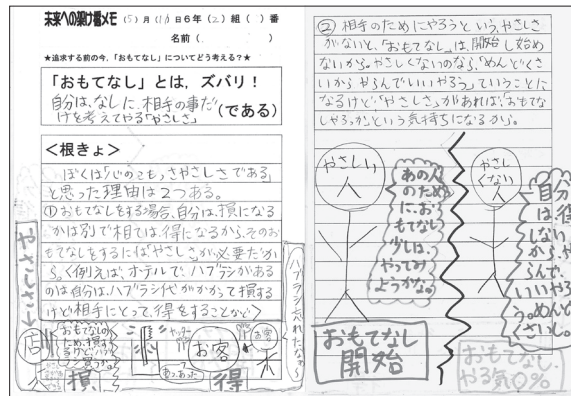 未来への架け橋メモ (5)月(  )日6年(2)組(  )番
名前(            )
★追求する前の今、「おもてなし」についてどう考える?★
「おもてなし」とは、ズバリ!
自分は、なしに、相手の事だ
けを考えてやる「やさしさ」
(である)
<根きょ>
ぼくは「心のこもっさやさしさである」
と思った理由は2つある。
①おもてなしをする場合、自分は、損になる
かは別で相ては、得になるから、そのお
もてなしをするには「やさしさ」が必要だか
ら。<例えば、ホテルで、ハブラシがある
のは自分は、ハブラシ代がかかって損する
けど相手にとって、得をすることなど>
やさしさ→
店
おもてなしの
ため、損す
るけど、ハブラ
シ買うか。
損
ヤッター
あっ、あった
お客
得
お客
ハブラシ忘れたなぁ〜
②相手のためにやろうという、やさしさ
がないと、「おもてなし」は、開始し始め
ないから。やさしくないのなら、「めんどくさ
いからやらんでいいやろう」ていうことに
なるけど、「やさしさ」があれば、「おもてな
しやろっか」という気持ちになるから。
やさしい
人
あの人
のため
に、お
もてなし
少しは、
やってみ
ようかな。
おもてなし
開始
やさし
くない
人
自分
は、得
しない
から、や
らんで、
いいやろ
う。めんど
くさいし。
おもてなし、
やる気0%